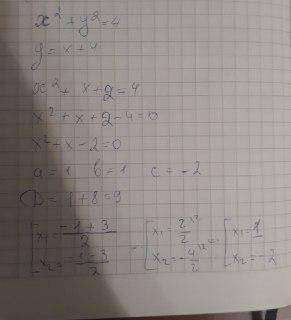 x² + y² = 4
y = x + 4
x² + x + 2 = 4
x² + x + 2 - 4 = 0
x² + x - 2 = 0
a = 1 b = 1 c = -2
D = 1 + 8 = 9
[ x₁ = (-1 + 3)/2 [ x₁ = 2/2 [ x₁ = 1
x₂ = (-1 - 3)/2 x₂ = -4/2 x₂ = -2